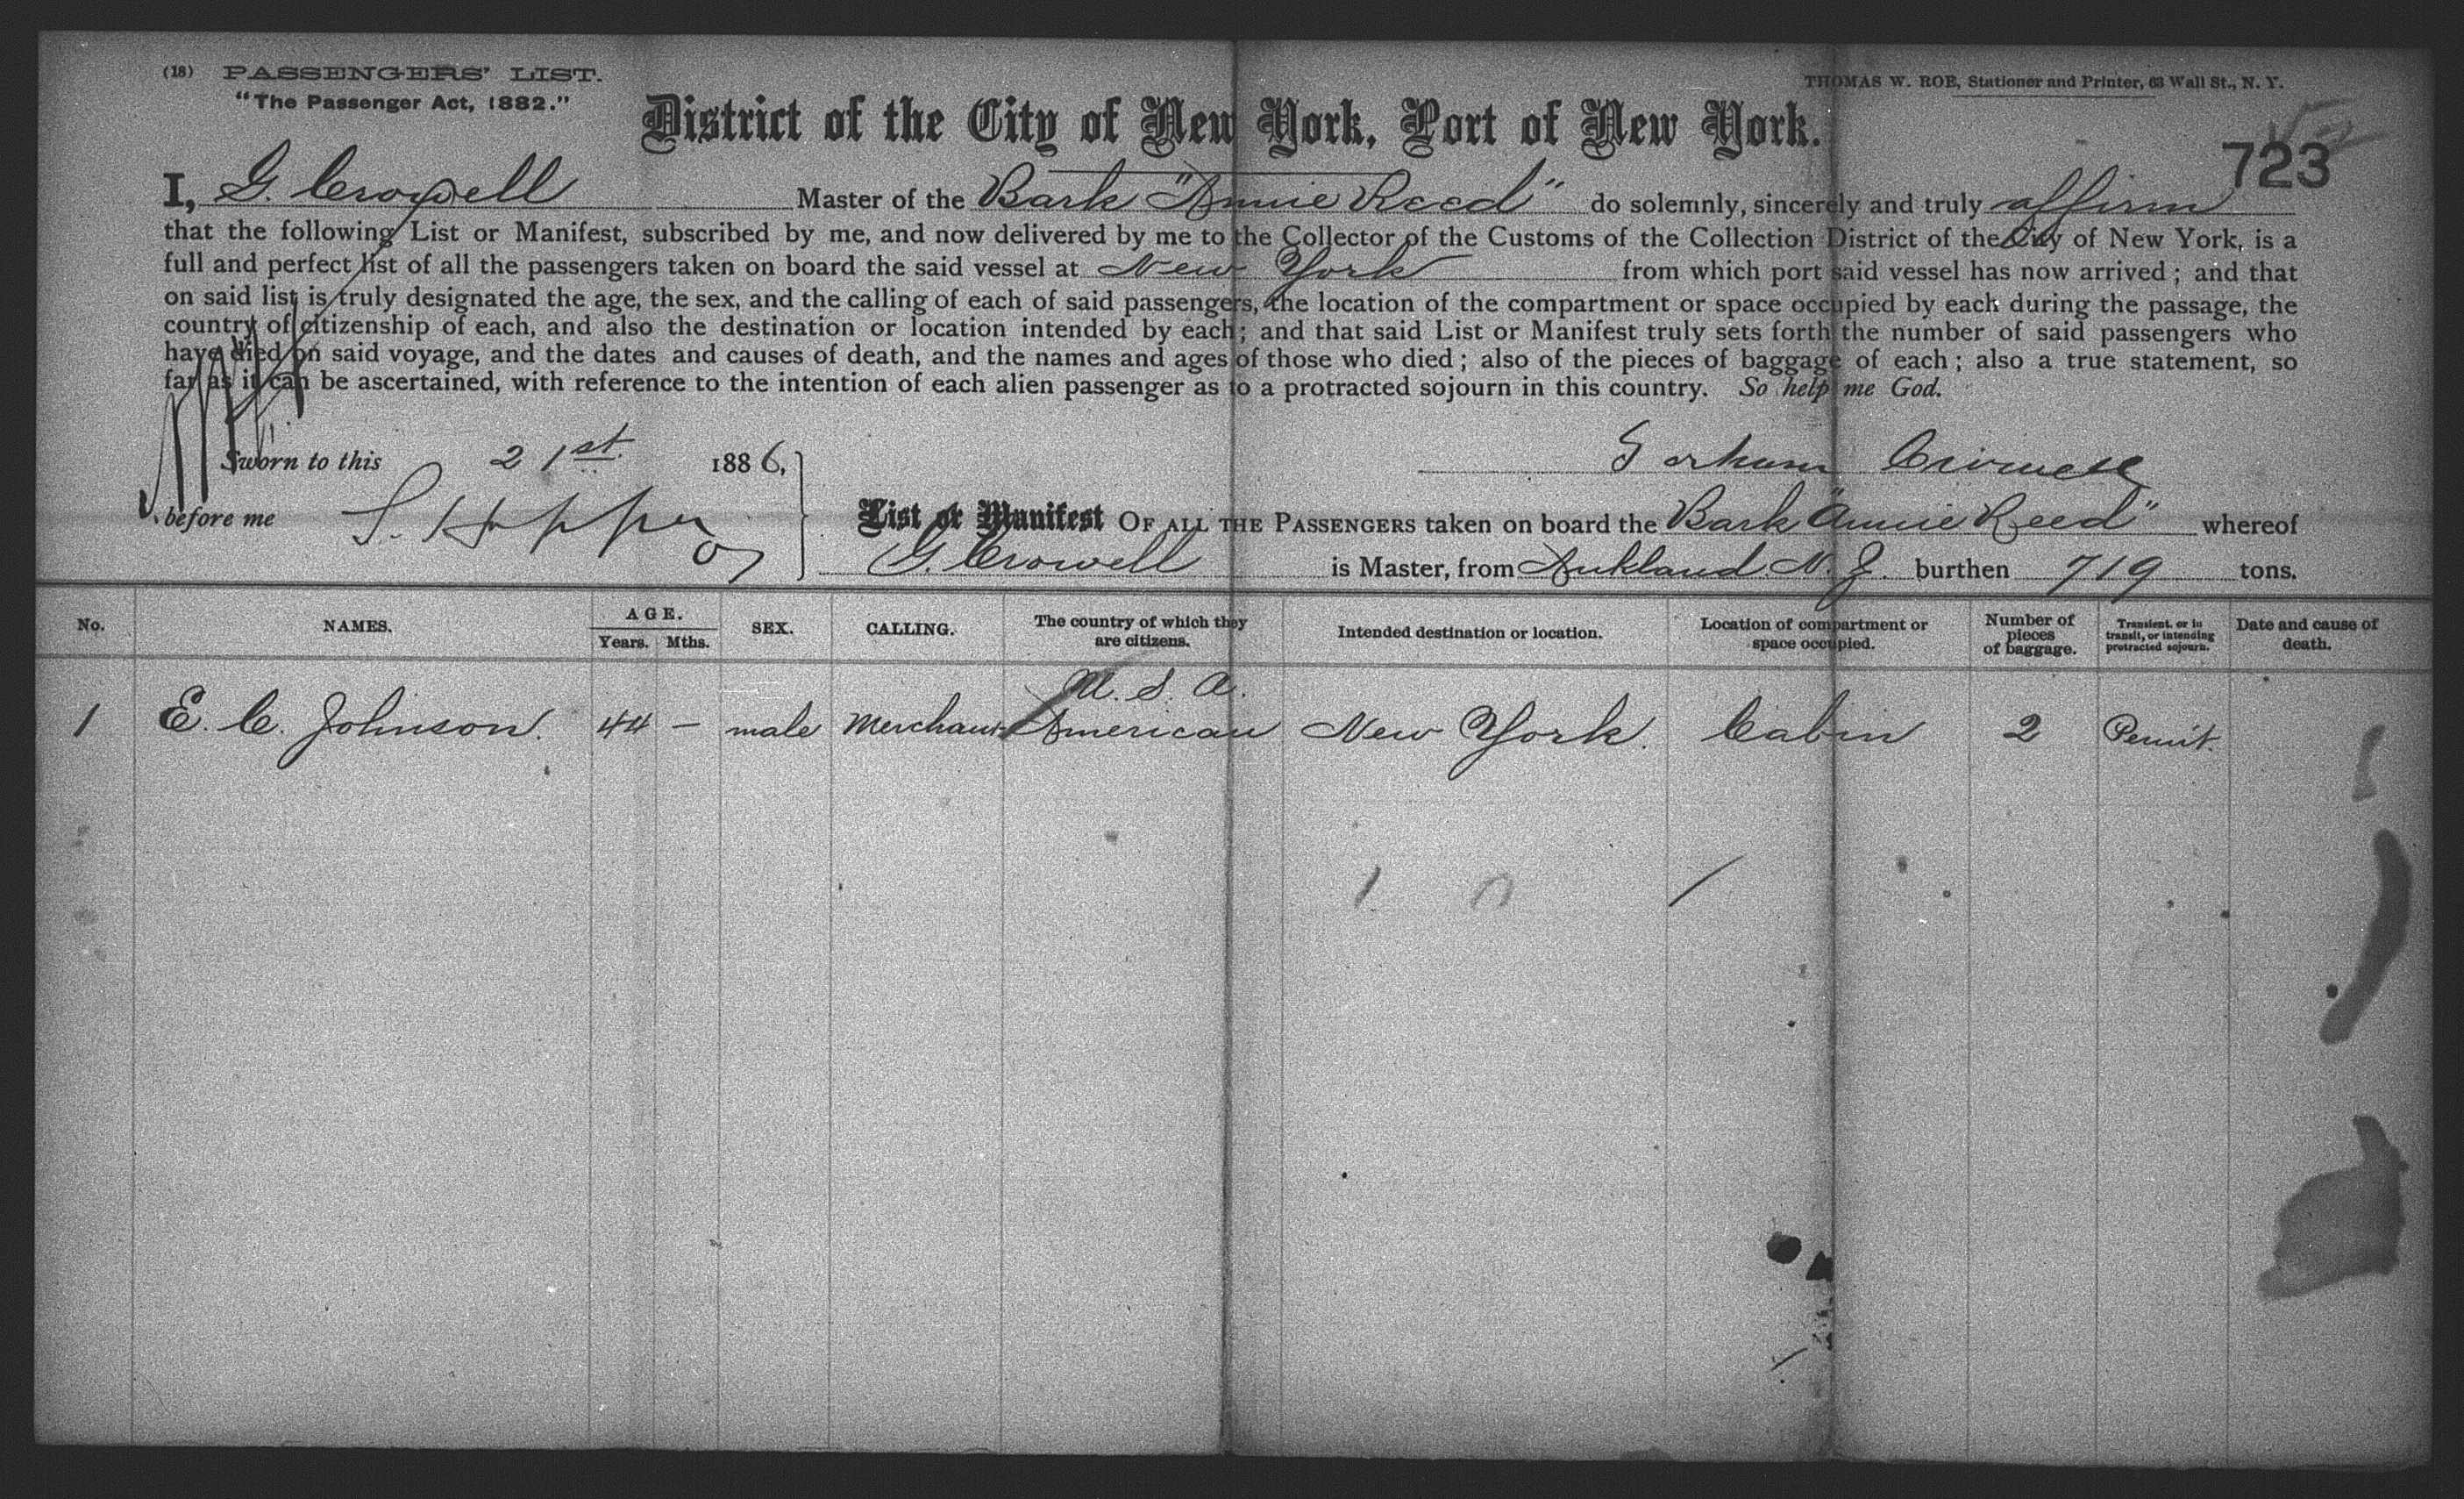 (18) PASSENGERS' LIST.
"The Passenger Act, 1882."
THOMAS W. ROE, Stationer and Printer, 63 Wall St., N. Y.
District of the City of New York, Port of New York.
723
I, G. Crowell Master of the Bark "Annie Reed" do solemnly, sincerely and truly affirm
that the following List or Manifest, subscribed by me, and now delivered by me to the Collector of the Customs of the Collection District of the City of New York, is a
full and perfect list of all the passengers taken on board the said vessel at New York from which port said vessel has now arrived; and that
on said list is truly designated the age, the sex, and the calling of each of said passengers, the location of the compartment or space occupied by each during the passage, the
country of citizenship of each, and also the destination or location intended by each; and that said List or Manifest truly sets forth the number of said passengers who
have died on said voyage, and the dates and causes of death, and the names and ages of those who died; also of the pieces of baggage of each; also a true statement, so
far as it can be ascertained, with reference to the intention of each alien passenger as to a protracted sojourn in this country. So help me God.
Sworn to this 21st. 1886,
Gorham Crowell
before me
List or Manifest OF ALL THE PASSENGERS taken on board the Bark "Annie Reed" whereof
G. Crowell is Master, from Aukland. N. Z. burthen 719 tons.
No. NAMES. AGE. Years. Mths. SEX. CALLING. The country of which they are citizens. Intended destination or location. Location of compartment or space occupied. Number of pieces of baggage. Transient, or in transit, or intending protracted sojourn. Date and cause of death.
U. S. A.
1 E. C. Johnson. 44 – male Merchant American New York. Cabin 2 Permt.